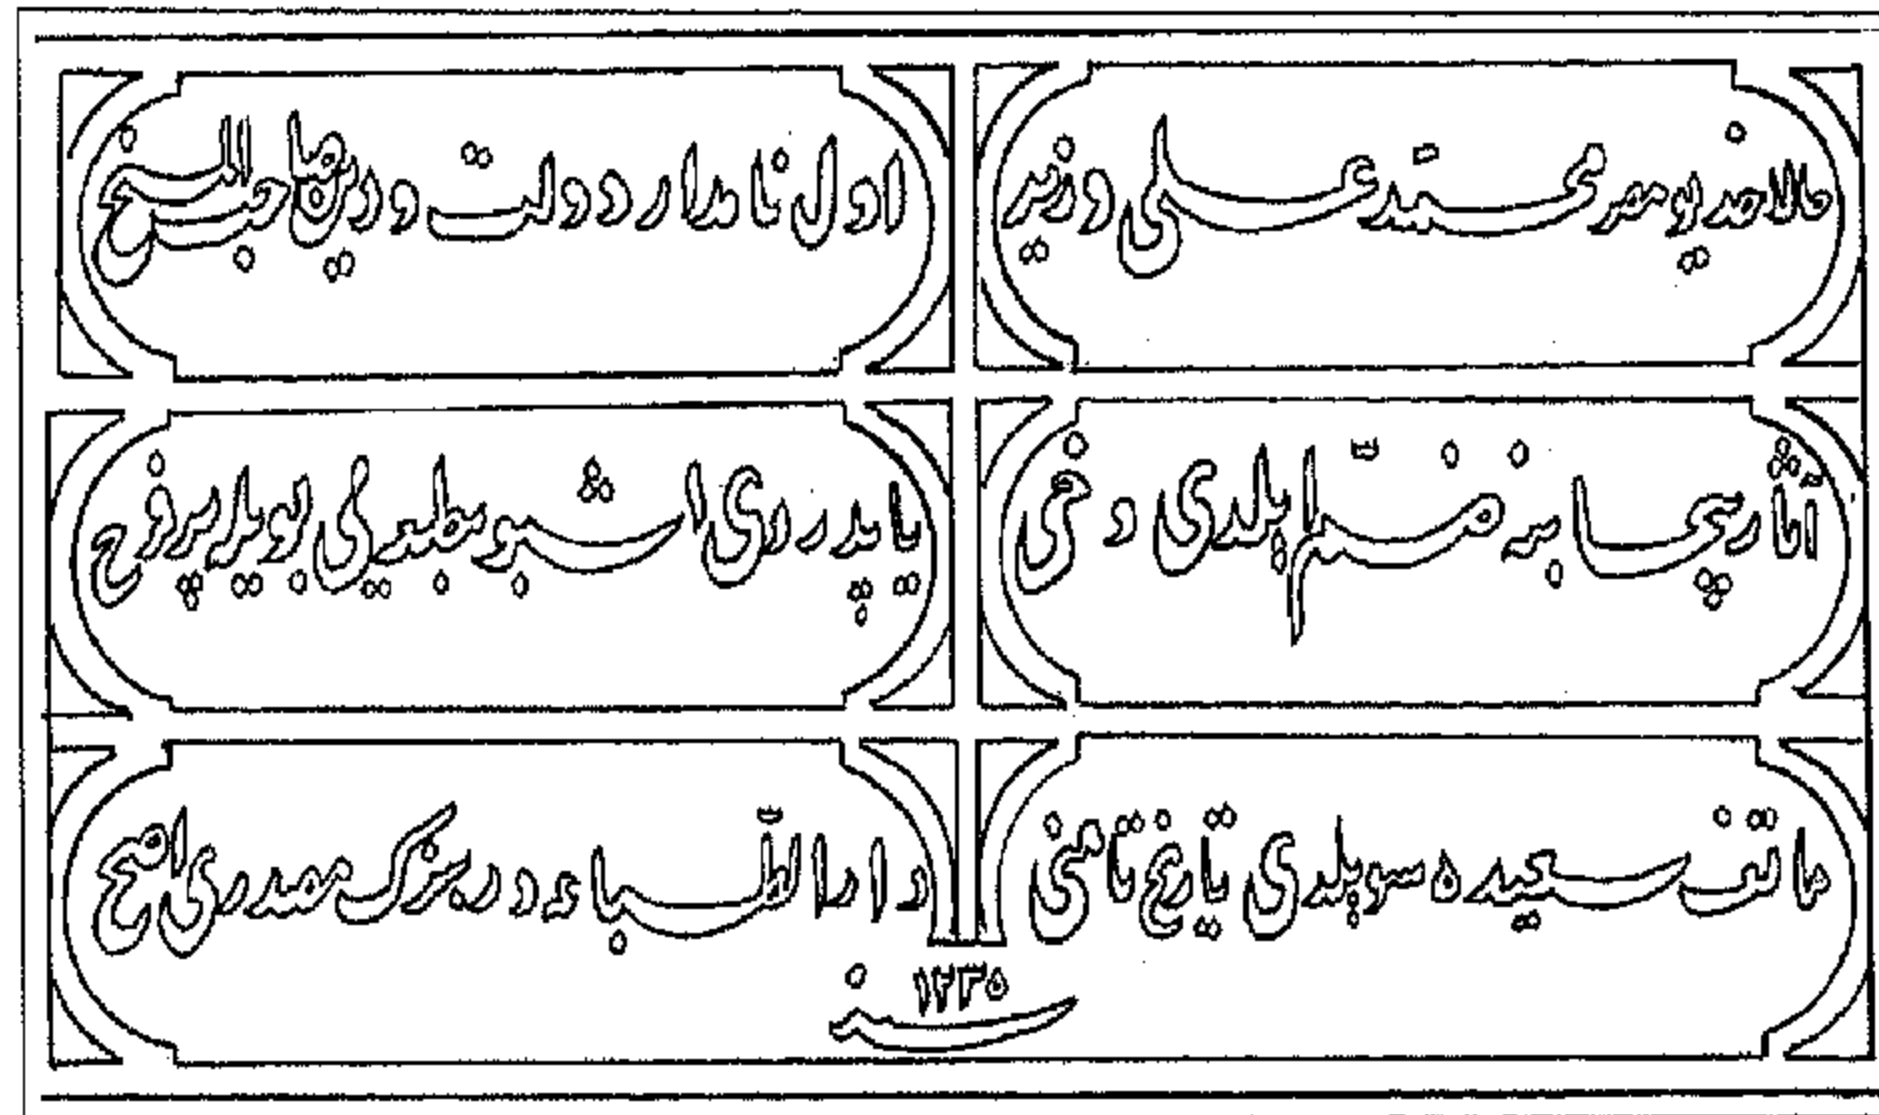 حالا خديو مصر محمد علی وزير
اول نامدار دولت و دين صاحب المنح
آثار بيحسابنه ضم ايلدی دخی
ياپدردی اشبو مطبعه يی بويله پرفرح
هاتف سعيده سويلدی تاريخ تامنی
دار الطباعه در بزك مصدری اصح
سنة ١٢٣٥